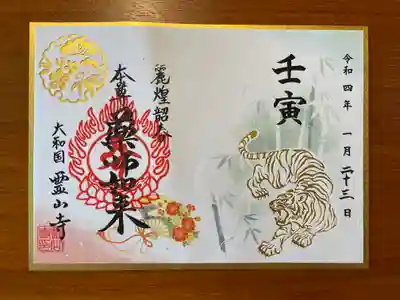 令和四年 一月 二十三日
壬寅
奉拝
本尊
薬師如来
大和国 霊山寺